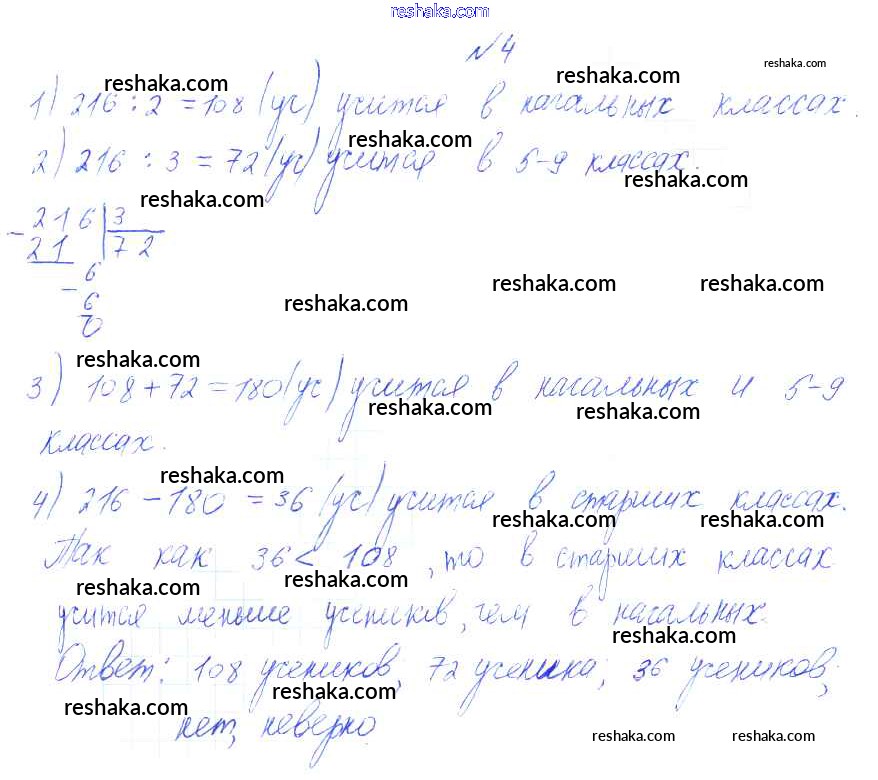 reshaka.com
№4
reshaka.com
reshaka.com reshaka.com
1) 216 : 2 = 108 (уч) учится в начальных классах.
reshaka.com
2) 216 : 3 = 72 (уч) учится в 5-9 классах.
reshaka.com
reshaka.com
- 216 | 3
21 | 72
- 6
6
0
reshaka.com reshaka.com
reshaka.com
reshaka.com
3) 108 + 72 = 180 (уч) учится в начальных и 5-9
reshaka.com reshaka.com
классах.
reshaka.com
4) 216 - 180 = 36 (уч) учится в старших классах.
reshaka.com reshaka.com
Так как 36 < 108, то в старших классах
reshaka.com
учится меньше учеников, чем в начальных.
reshaka.com
Ответ: 108 учеников, 72 ученика; 36 учеников;
reshaka.com
reshaka.com
нет, неверно
reshaka.com reshaka.com